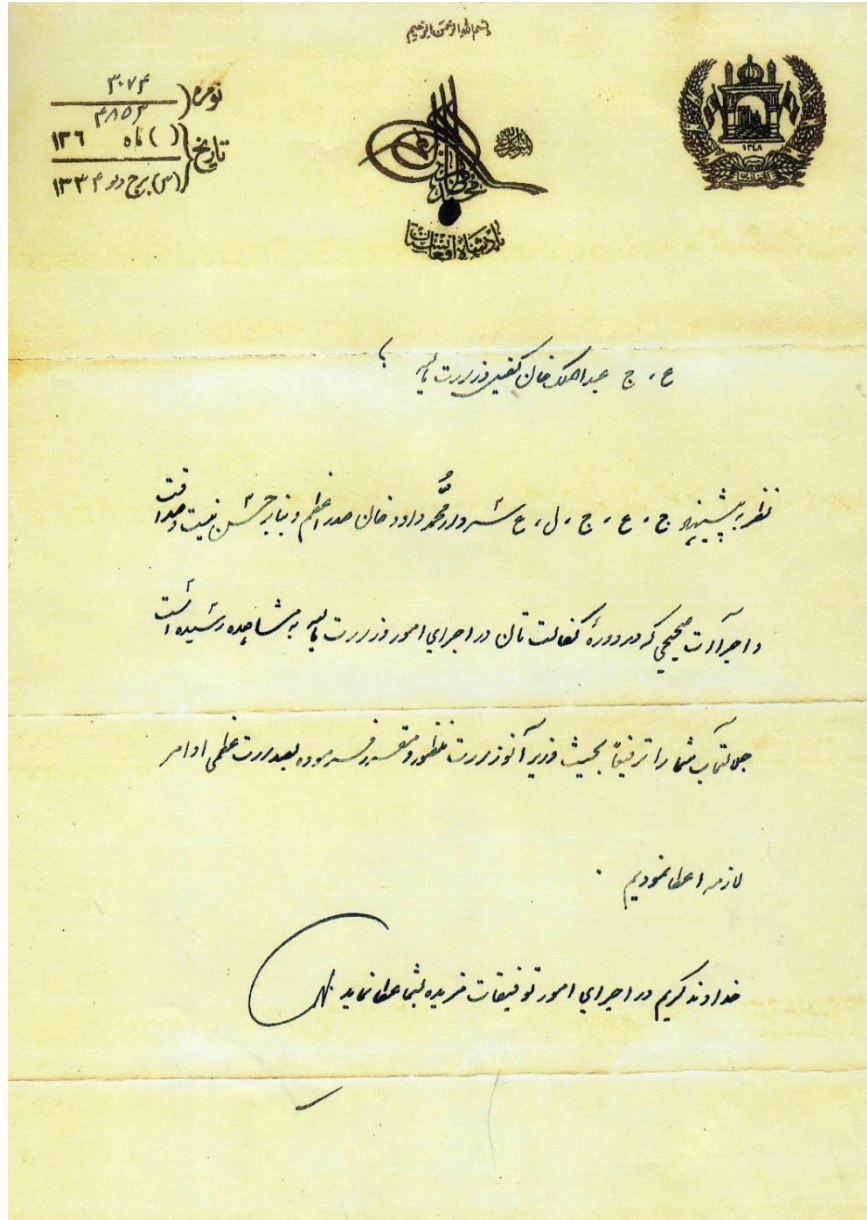 بسم الله الرحمن الرحیم
نومره ۳۰۷۴
۴۸۵۳
تاریخ ( ) ماه ۱۳۶
(۳) برج دلو ۱۳۳۴
المتوکل علی الله
محمد ظاهر
پادشاه افغانستان
۱۳۴۸
ع ، ج عبدالملک خان کفیل وزارت مالیه !
نظر به پیشنهاد ج ، ع ، ج ، ل ، ع سردار محمد داود خان صدراعظم و بنابر حسن نیت و صداقت
و اجراآت صحیحی که در دورهٔ کفالت تان در اجرای امور وزارت مالیه به مشاهده رسیده است
جلالتمآب شما را ترفیعاً بحیث وزیر آنوزارت منظور و مقرر فرموده بصدارت عظمی اوامر
لازمه اعطا نمودیم .
خداوند کریم در اجرای امور توفیقات مزیده بشما عطا نماید